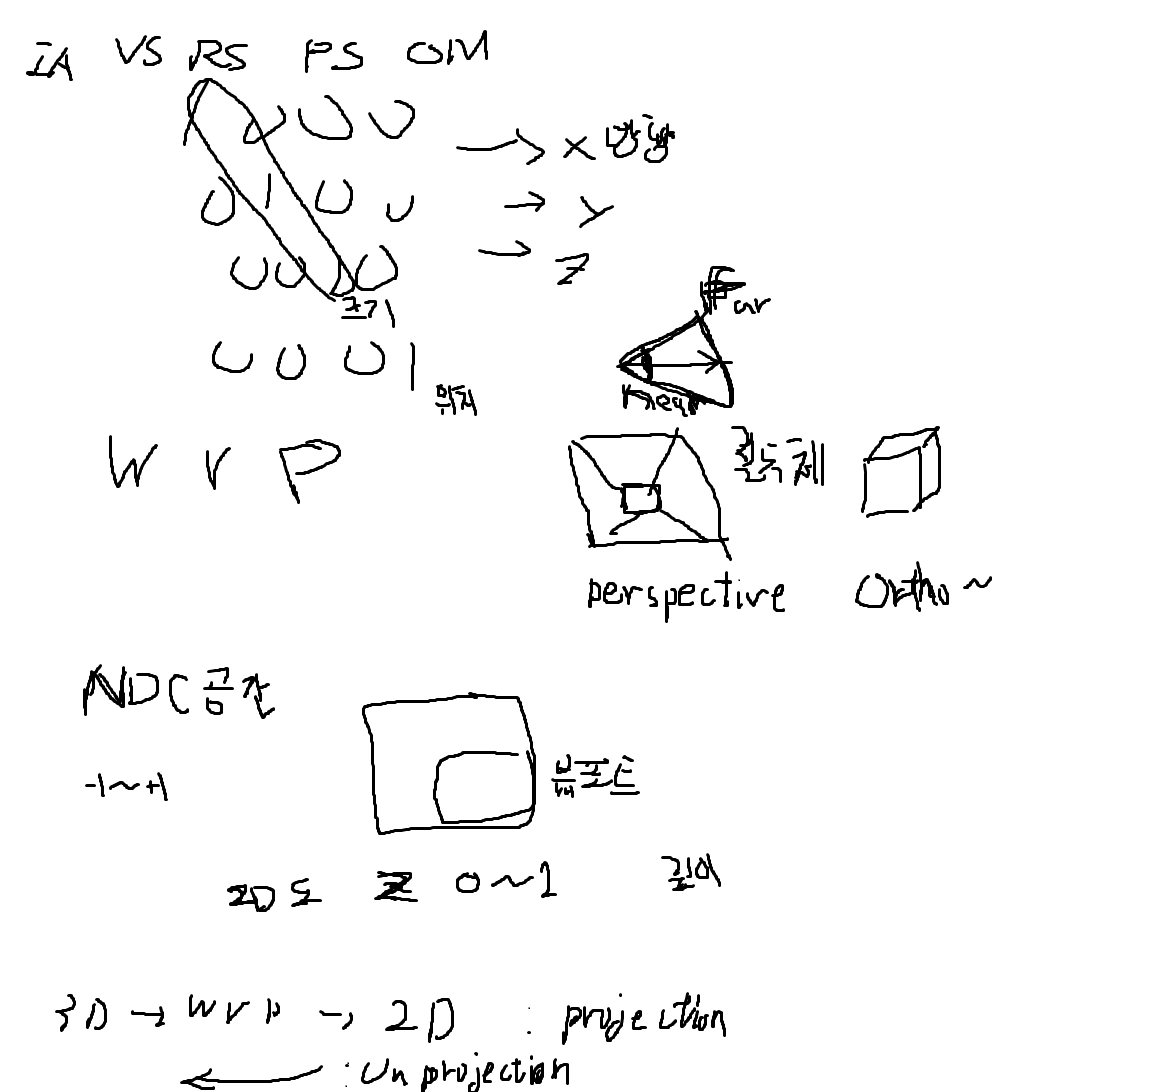 IA VS RS PS OM
1 0 0 0 → X 방향
0 1 0 0 → Y
0 0 1 0 → Z
크기
Far
0 0 0 1
위치
near
W V P
절두체
perspective Ortho~
NDC 공간
-1~+1
뷰포트
2D도 Z 0~1 깊이
3D → WVP → 2D : projection
← : Unprojection